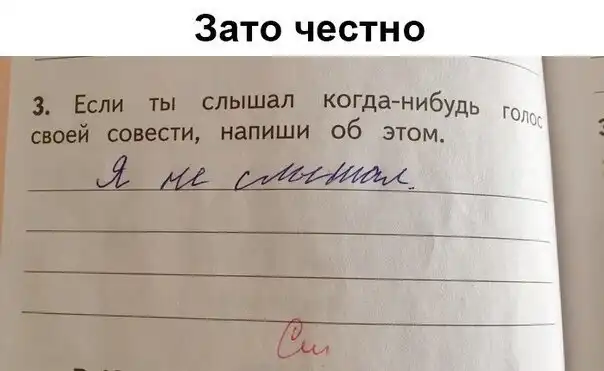 Зато честно
3. Если ты слышал когда-нибудь голос
своей совести, напиши об этом.
Я не слышал.
См